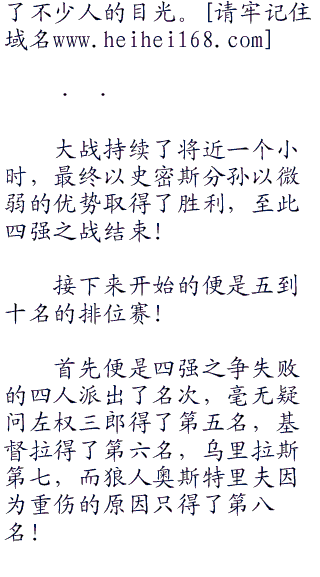 了不少人的目光。[请牢记住
域名www.heihei168.com]
. .
大战持续了将近一个小
时，最终以史密斯分孙以微
弱的优势取得了胜利，至此
四强之战结束！
接下来开始的便是五到
十名的排位赛！
首先便是四强之争失败
的四人派出了名次，毫无疑
问左权三郎得了第五名，基
督拉得了第六名，乌里拉斯
第七，而狼人奥斯特里夫因
为重伤的原因只得了第八
名！